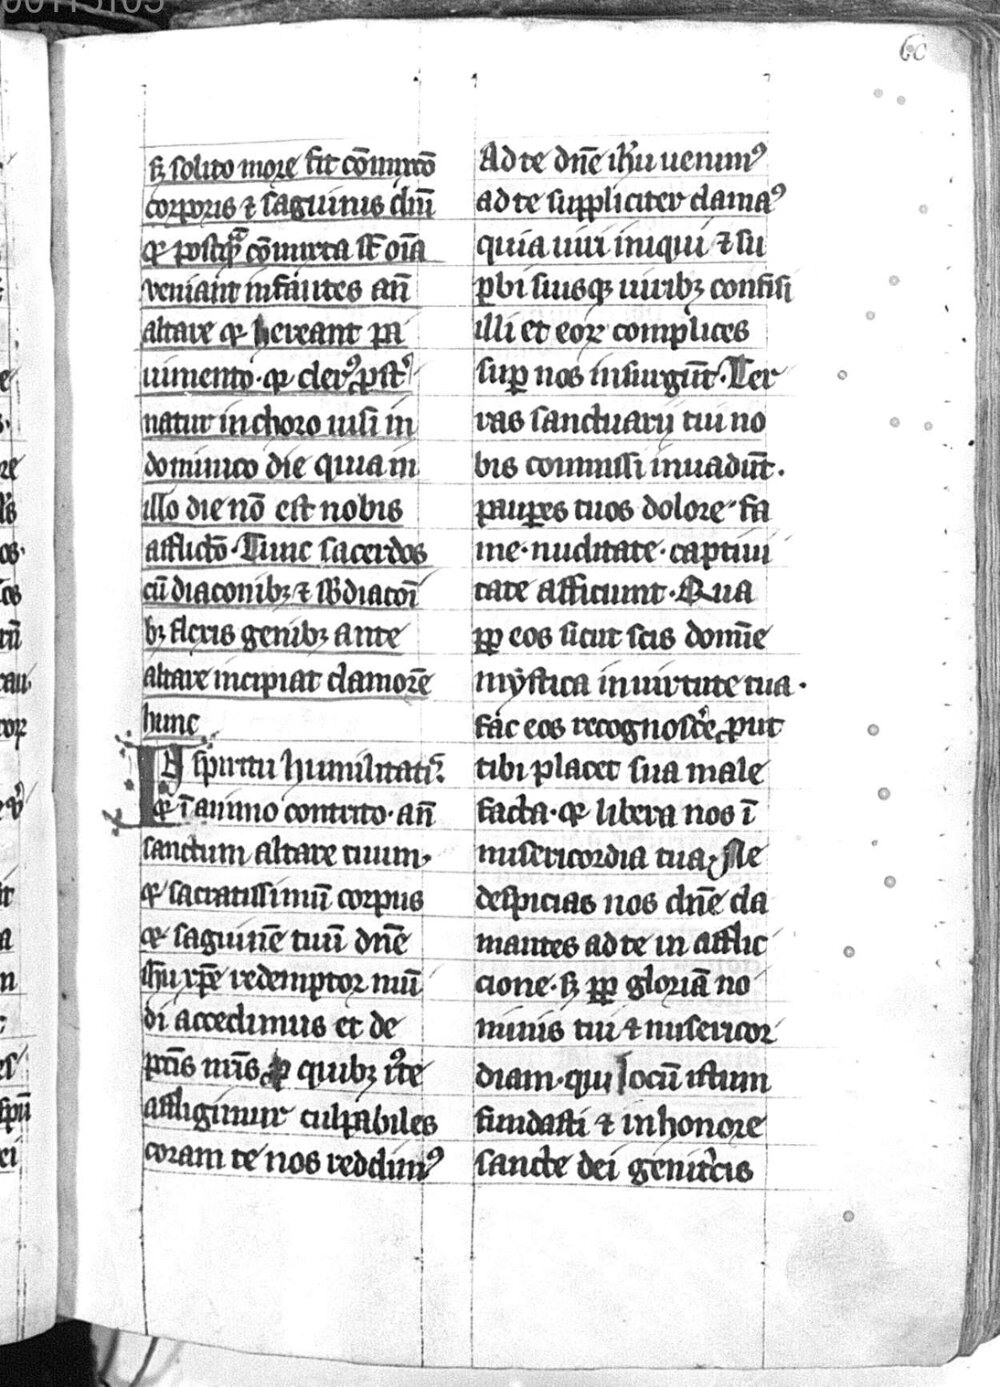 60
sꝫ solito more fit cōmixtō
corporis ⁊ sāguinis dn̄i
et postqᵃ̄ cōmixta st̄ oīa
veniant infantes an̄
altare et hereant pa
uimento · et clerꝰ ꝓst̾
natur in choro nisi in
dominico die quia in
illo die nō est nobis
afflictō · Tunc sacerdos
cū diaconibꝫ ⁊ sb̄diaconī
bꝫ flexis genibꝫ ante
altare incipiat clamorē
hunc
In spiritu humilitatis
et ī animo contrito · an̄
sanctum altare tuum
et sacratissimū corpus
et saguinē tuū dn̄e
ih̄u xp̄e redemptor mū
di accedimus et de
pctīs nr̄is ꝓ quibꝫ iʳte
affligimur culpabiles
coram te nos reddimꝰ
Ad te dn̄e ih̄u uenimꝰ
ad te suppliciter clamaꝰ
quia uiri iniqui ⁊ su
ꝑbi suisqꝫ uiribꝫ confisi
illi et eoꝝ complices
suꝑ nos insurgūt · Ter
ras sanctuarij tui no
bis commissi inuadūt ·
pauꝑes tuos dolore fa
me · nuditate · captiui
tate afficiunt · Qua
ꝓꝑ eos sicut scis domīe
mẏstica in uirtute tua ·
fac eos recognoscē ꝓut
tibi placet sua male
facta · et libera nos ī
misericordia tua Ne
despicias nos dn̄e cla
mantes ad te in afflic
cione · sꝫ ꝓꝑ gloriā no
minis tui ⁊ misericor
diam · qui locū istum
fundasti ⁊ in honore
sancte dei genitͥcis